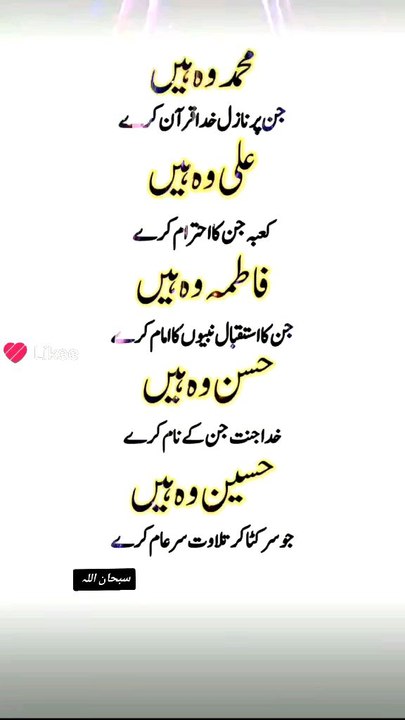 محمد وہ ہیں
جن پر نازل خدا قرآن کرے
علی وہ ہیں
کعبہ جن کا احترام کرے
فاطمہ وہ ہیں
جن کا استقبال نبیوں کا امام کرے
Likee
حسن وہ ہیں
خدا جنت جن کے نام کرے
حسین وہ ہیں
جو سر کٹا کر تلاوت سرعام کرے
سبحان اللہ